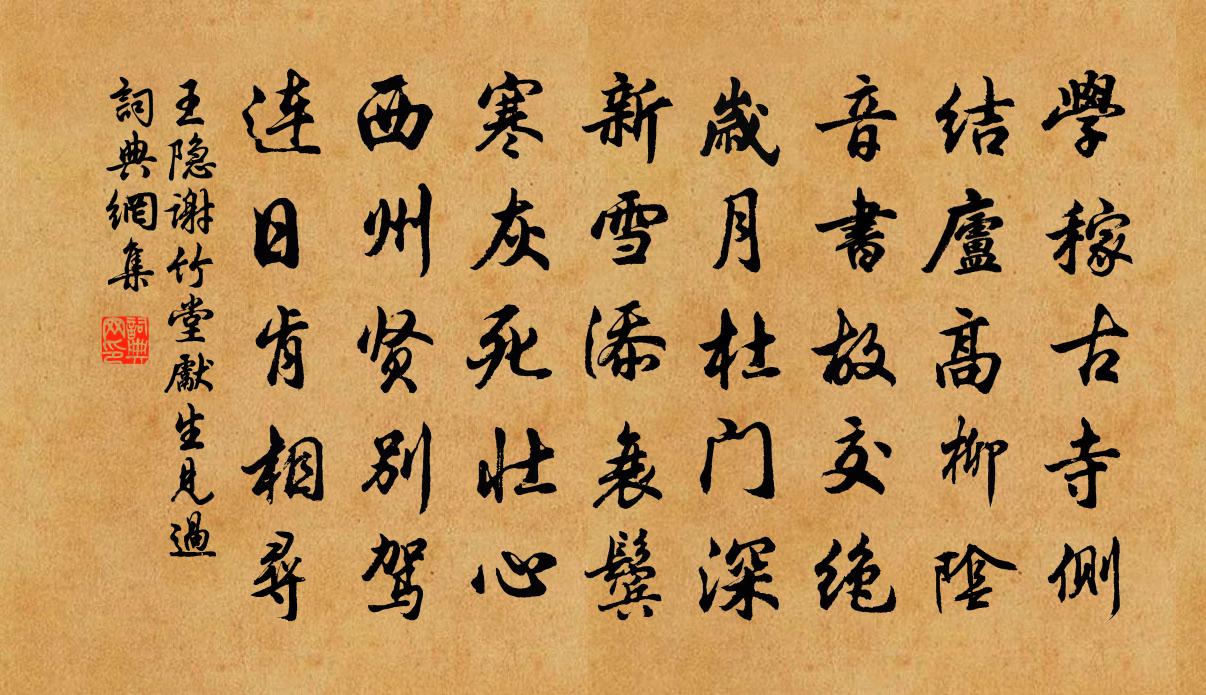 學稼古寺側
结廬高柳陰
音書故交绝
歲月杜门深
新雪添衰鬢
寒灰死壮心
西州贤别驾
连日肯相尋
王隐谢竹堂獻生見過
詞典網集
詞典网印